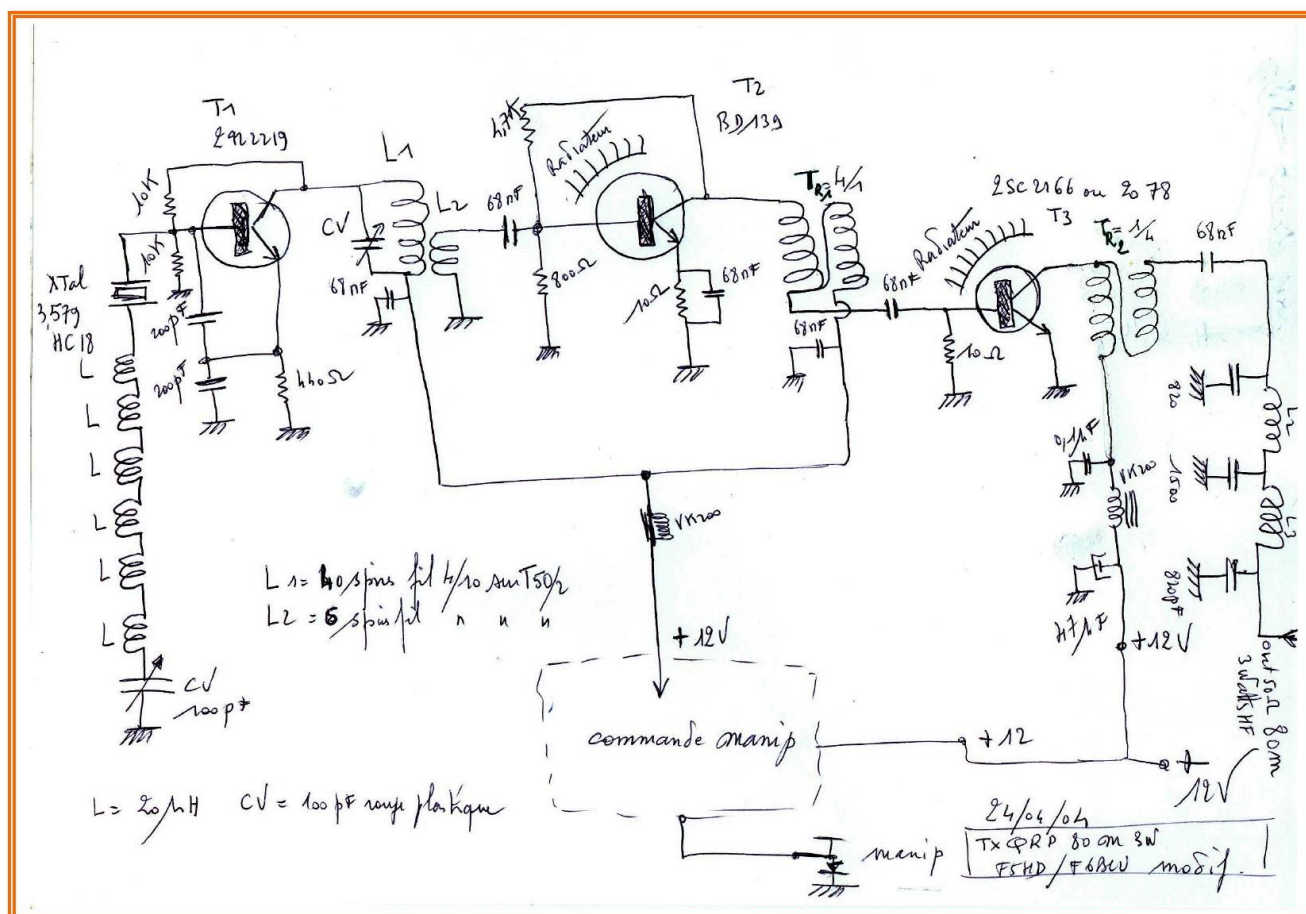 T1
2N2219
10K
10K
XTal
3,579
HC18
200pF
200pF
L
L
L
L
L
L
CV
100pF
L1
CV
68nF
L2
68nF
4,7K
Radiateur
T2
BD139
800Ω
10Ω
68nF
TR1= 4/1
68nF
68nF
Radiateur
2SC2166 ou 2078
T3
10Ω
TR2= 1/4
68nF
0,1µF
VK200
47µF
+12V
820
L2
1500
L3
820pF
out 50Ω 80m
3 Watts HF
VK200
+12V
L1= 40 spires fil 4/10 sur T50/2
L2 = 6 spires fil " " "
commande manip
+12
+
12V
manip
L= 20µH CV = 100pF rouge plastique
24/04/04
TX QRP 80m 3W
modif.